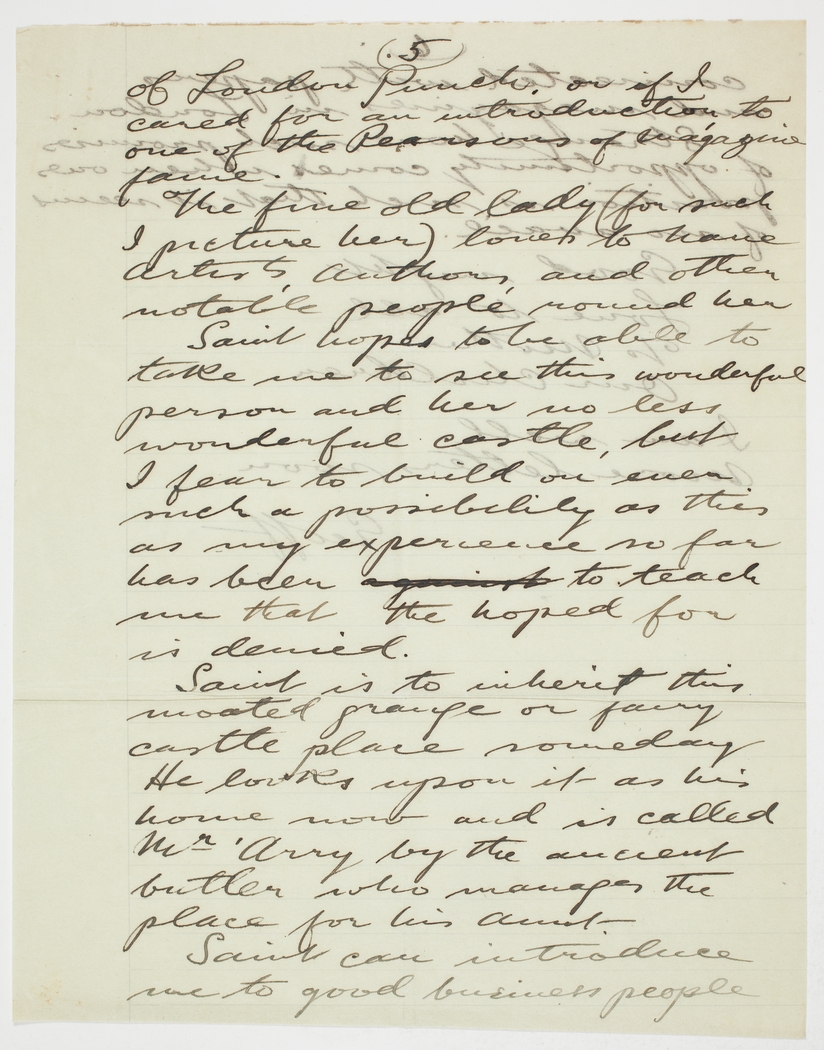 (. 5 )
of London Punch. or if I
cared for an introduction to
one of the Pearsons of Magazine
fame.
The fine old lady (for such
I picture her) loves to have
Artists, Authors, and other
notable people, round her
Saint hopes to be able to
take me to see this wonderful
person and her no less
wonderful castle, but
I fear to build on even
such a possibility as this
as my experience so far
has been against to teach
me that the hoped for
is denied.
Saint is to inherit this
moated grange or fairy
castle place someday
He looks upon it as his
home now and is called
Mr 'Arry by the ancient
butler who manages the
place for his aunt
Saint can introduce
me to good business people